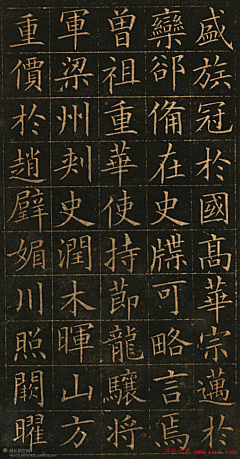 盛族冠於國高華宗邁於
欒郤備在史牒可略言焉
曾祖重華使持節龍驤將
軍梁州刾史潤木暉山方
重價於趙璧媚川照闕曜